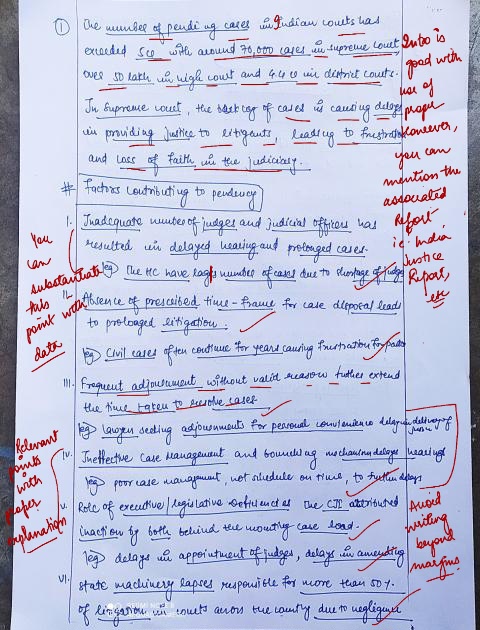 ① The number of pending cases in Indian courts has
exceeded 5 cr with around 70,000 cases in supreme court,
over 50 lakh in high court and 4.4 cr in district courts.
In Supreme court, the backlog of cases is causing delays
in providing justice to litigants, leading to frustration
and loss of faith in the judiciary.
Intro is
good with
use of
proper
However,
you can
mention the
associated
Report
i.e. India
Justice
Report,
etc
# Factors contributing to pendency
I. Inadequate number of judges and judicial officers has
resulted in delayed hearing and prolonged cases.
eg The HC have large number of cases due to shortage of judges
You
can
substantiate
this
point with
data
II. Absence of prescribed time-frame for case disposal leads
to prolonged litigation.
eg Civil cases often continue for years causing frustration for
III. Frequent adjournment without valid reason further extend
the time taken to resolve cases.
eg lawyer seeking adjournments for personal convenience delaying delivery of
justice
IV. Ineffective Case Management and mechanism delays hearing
eg poor case management, not schedule on time, to further delays
Relevant
points
with
proper
explanation
V. Role of executive/legislative deficiencies the CJI attributed
inaction by both behind the mounting case load.
eg delays in appointment of judges, delays in amending
Avoid
writing
beyond
margins
VI. state machinery lapses responsible for more than 50%
of litigation in courts across the country due to negligence